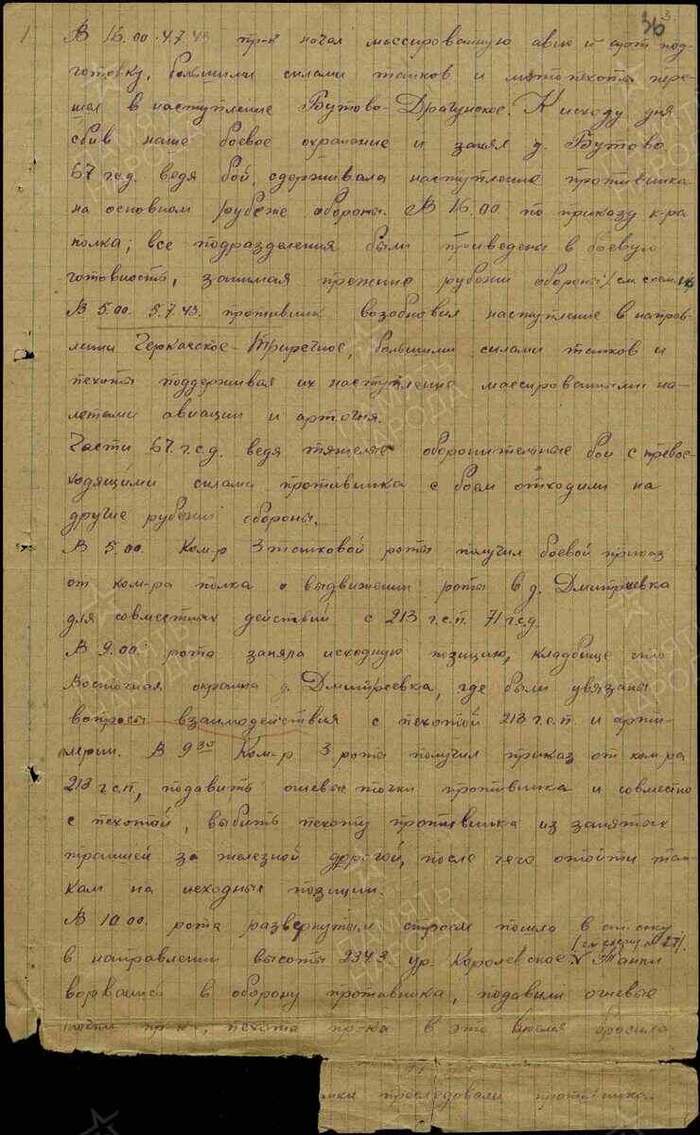 36 3
В 16.00 4.7.43 пр-к начал массированную авио и арт под-
готовку, большими силами танков и мотопехоты пере-
шел в наступление Бутово-Драгунское. К исходу дня
сбив наше боевое охранение и занял д. Бутово
67 гсд. ведя бой, сдерживала наступление противника
на основном рубеже обороны. В 16.00 по приказу к-ра
полка, все подразделения были приведены в боевую
готовность, занимая прежние рубежи обороны (см схему
В 5.00. 5.7.43. противник возобновил наступление в направ-
лении Черкасское-Триречное, большими силами танков и
пехоты поддерживая их наступление массированными на-
летами авиации и артогня.
Части 67. г.с.д. ведя тяжелые оборонительные бои с превос-
ходящими силами противника с боем отходили на
другие рубежи обороны.
В 5.00. Ком-р 3 танковой роты получил боевой приказ
от ком-ра полка о выдвижении роты в д. Дмитриевка
для совместных действий с 213 г.с.п. 71 г.с.д.
В 9.00. рота заняла исходную позицию, кладбище что
Восточная окраина д. Дмитриевка, где были увязаны
вопросы взаимодействия с пехотой 213 г.с.п. и арти-
лерии. В 9 30 Ком-р 3 роты получил приказ от ком-ра
213 г.с.п, подавить огневые точки противника и совместно
с пехотой, выбить пехоту противника из занятых
траншей за железной дорогой, после чего отойти тан-
кам на исходные позиции.
В 10.00. рота развернутым строем пошла в атаку
в направлении высоты 234.3 ур. Королевское (см схему № 27). Танки
ворвались в оборону противника, подавили огневые
точки пр-ка, пехота пр-ка в это время бросила
преследовали противника